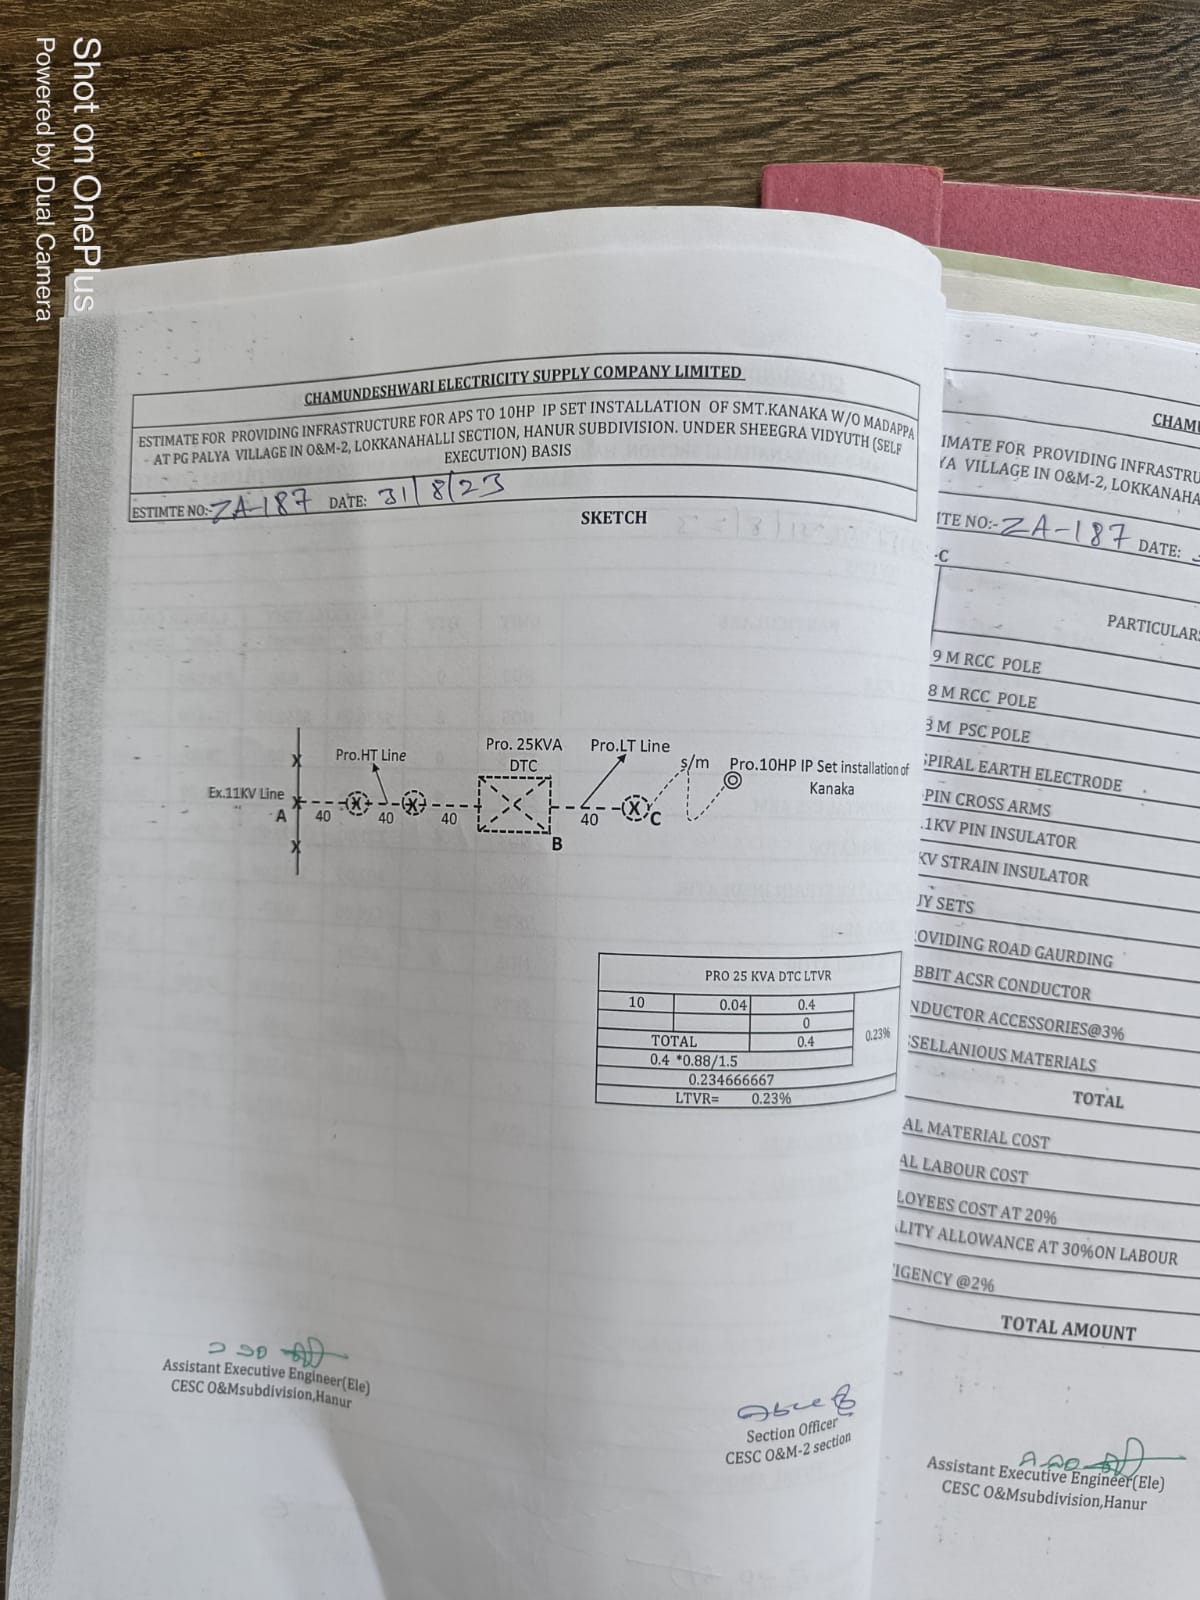 Shot on OnePlus
Powered by Dual Camera
CHAMUNDESHWARI ELECTRICITY SUPPLY COMPANY LIMITED
ESTIMATE FOR PROVIDING INFRASTRUCTURE FOR APS TO 10HP IP SET INSTALLATION OF SMT.KANAKA W/O MADAPPA
- AT PG PALYA VILLAGE IN O&M-2, LOKKANAHALLI SECTION, HANUR SUBDIVISION. UNDER SHEEGRA VIDYUTH (SELF
EXECUTION) BASIS
ESTIMTE NO:- ZA-187 DATE: 31/8/23
SKETCH
Pro.HT Line
Pro. 25KVA
DTC
Pro.LT Line
s/m
Pro.10HP IP Set installation of
Kanaka
Ex.11KV Line
A
X
X
X
40
X
40
X
40
B
40
X
C
PRO 25 KVA DTC LTVR
10 0.04 0.4
0
TOTAL 0.4
0.23%
0.4 *0.88/1.5
0.234666667
LTVR= 0.23%
Assistant Executive Engineer(Ele)
CESC O&Msubdivision,Hanur
Section Officer
CESC O&M-2 section
CHAMU
IMATE FOR PROVIDING INFRASTRU
YA VILLAGE IN O&M-2, LOKKANAHA
ITE NO:- ZA-187 DATE:
-C
PARTICULARS
9 M RCC POLE
8 M RCC POLE
8 M PSC POLE
SPIRAL EARTH ELECTRODE
PIN CROSS ARMS
.1KV PIN INSULATOR
KV STRAIN INSULATOR
UY SETS
OVIDING ROAD GAURDING
BBIT ACSR CONDUCTOR
NDUCTOR ACCESSORIES@3%
SSELLANIOUS MATERIALS
TOTAL
AL MATERIAL COST
AL LABOUR COST
LOYEES COST AT 20%
ALITY ALLOWANCE AT 30%ON LABOUR
IGENCY @2%
TOTAL AMOUNT
Assistant Executive Engineer(Ele)
CESC O&Msubdivision,Hanur